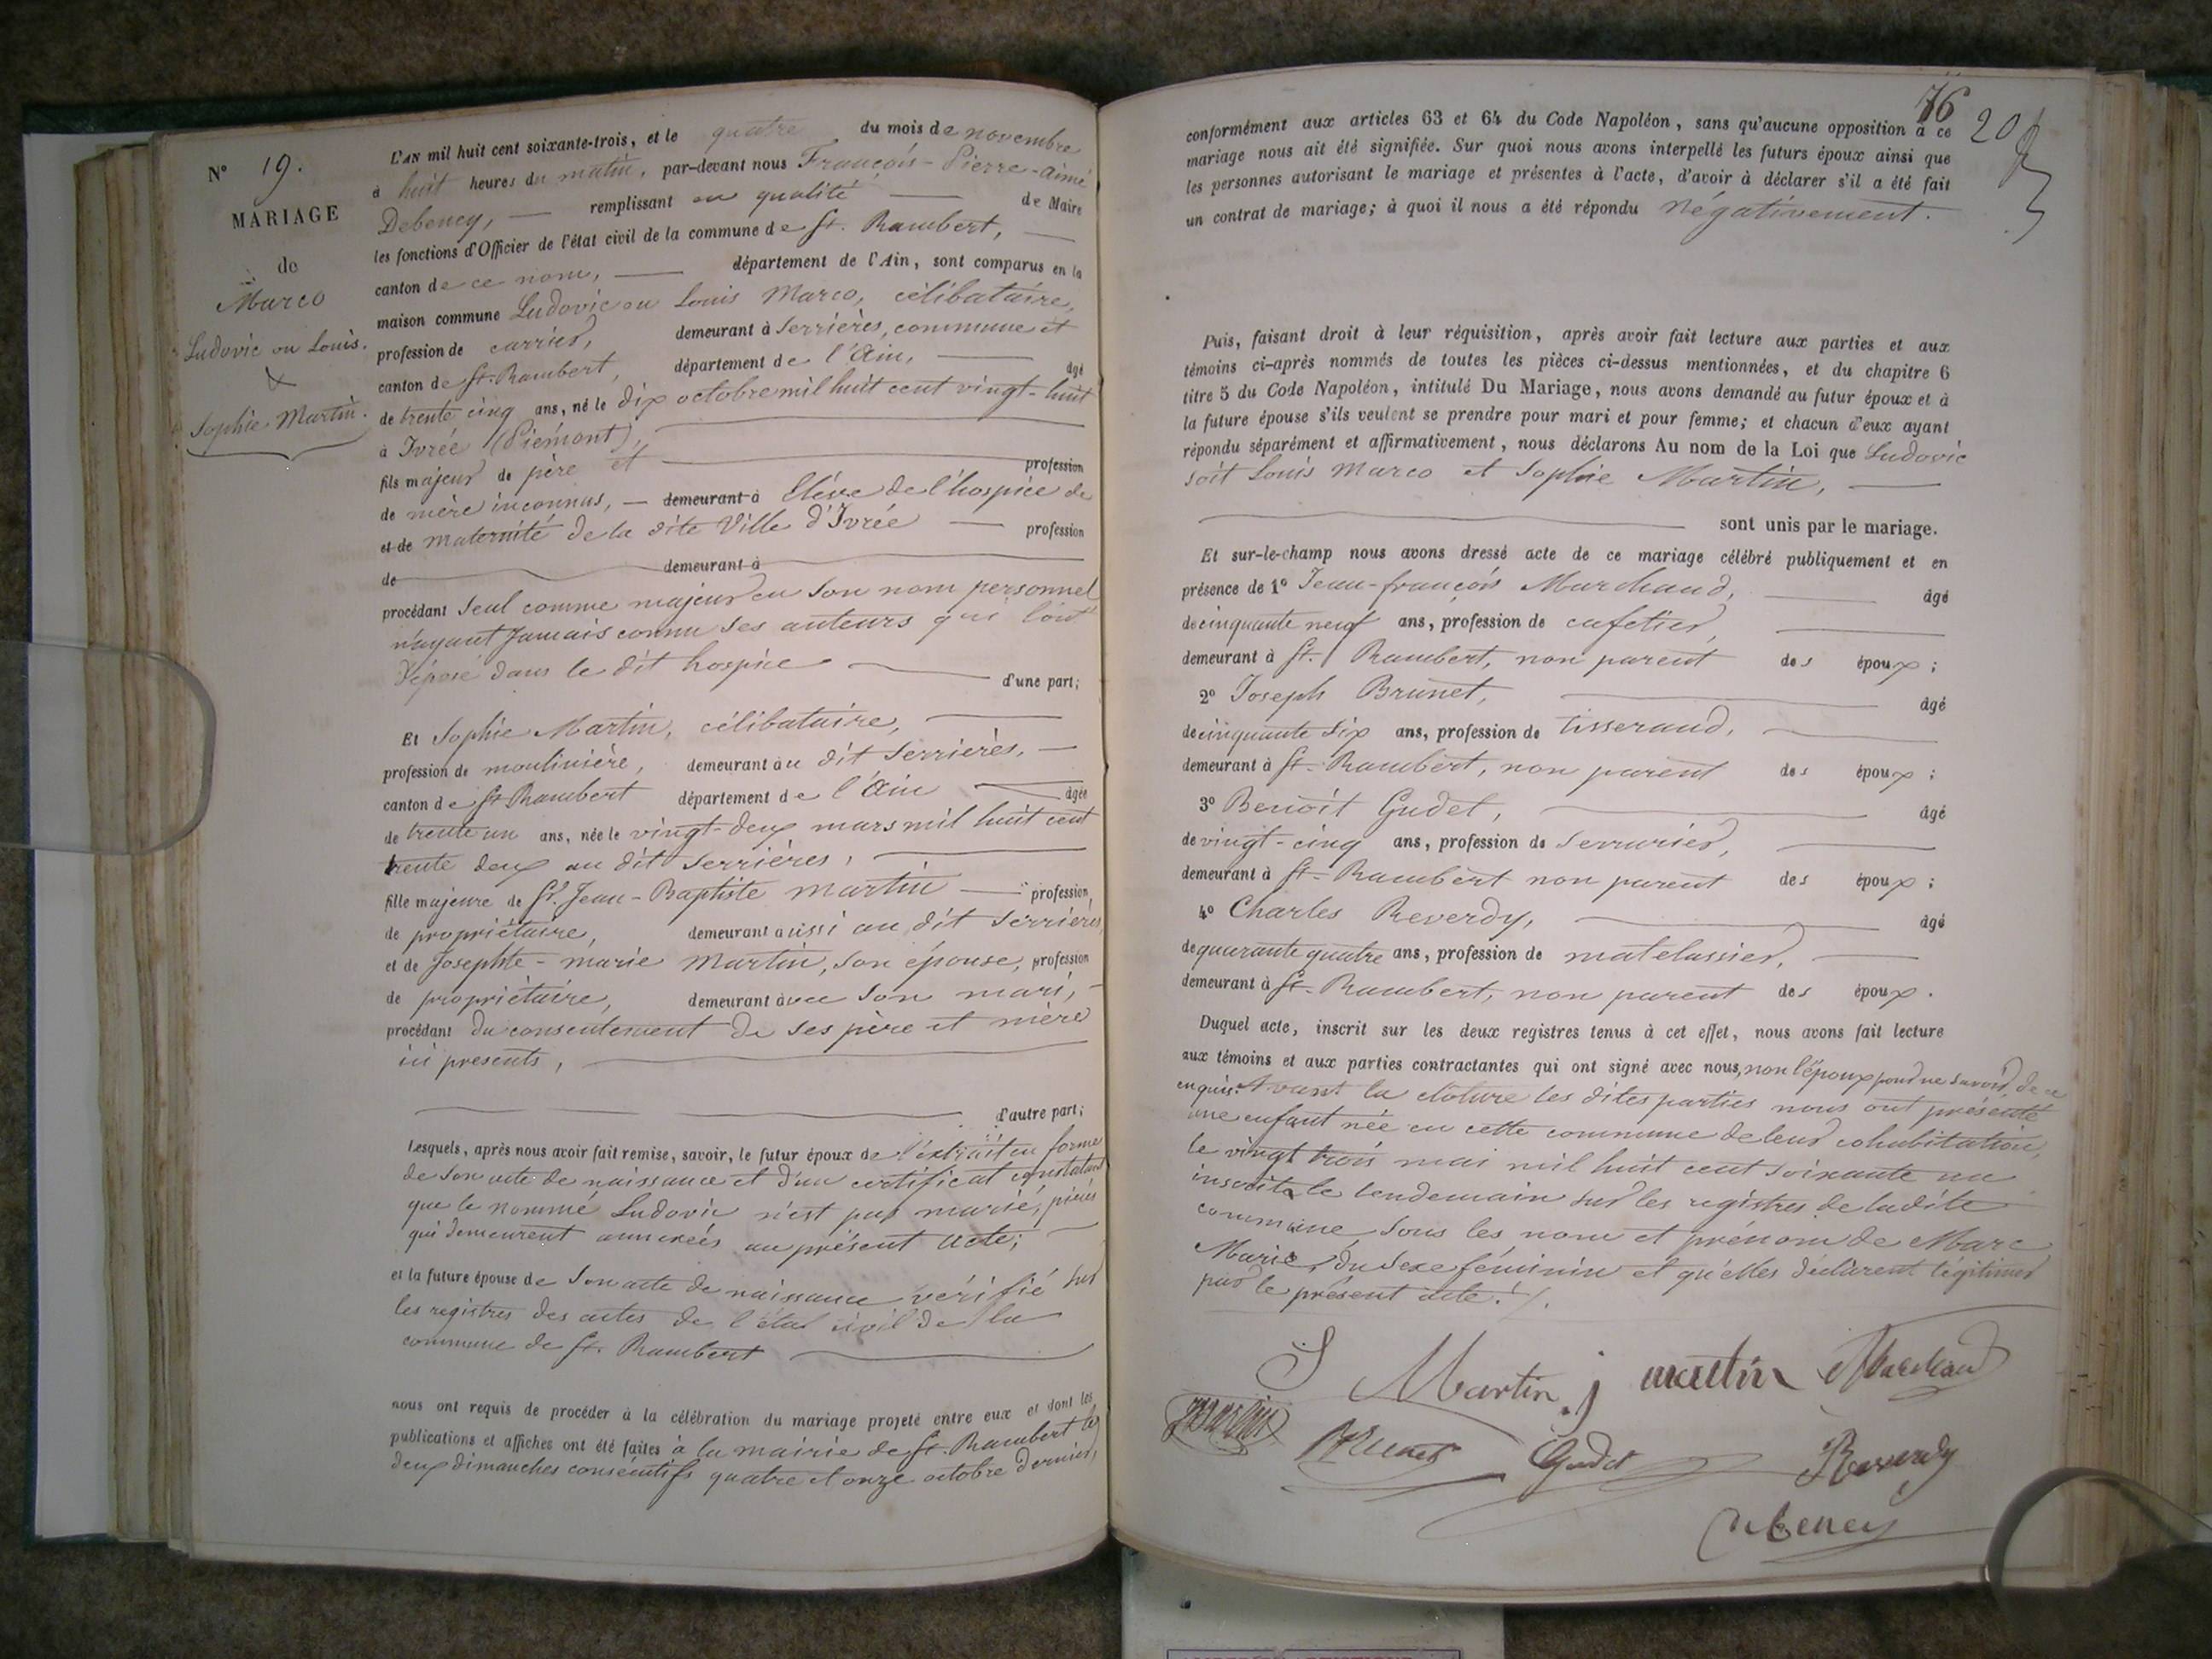 N° 19.
MARIAGE
de
Marco
Ludovic ou Louis.
&
Sophie Martin.
L'AN mil huit cent soixante-trois, et le quatre du mois de novembre
à huit heures du matin, par-devant nous François-Pierre-aimé
Debeney, — remplissant en qualité — de Maire
les fonctions d'Officier de l'état civil de la commune de St. Rambert, —
canton de ce nom, — département de l'Ain, sont comparus en la
maison commune Ludovic ou Louis Marco, célibataire,
profession de carrier, demeurant à Serrières, commune et
canton de St. Rambert, département de l'Ain, — âgé
de trente cinq ans, né le dix octobre mil huit cent vingt-huit
à Ivrée (Piémont), —
fils majeur de père et — profession
de mère inconnus, — demeurant à Elève de l'hospice de
et de maternité de la dite Ville d'Ivrée — profession
de — demeurant à —
procédant seul comme majeur en son nom personnel
n'ayant jamais connu ses auteurs qui l'ont
déposé dans le dit hospice — d'une part;
Et Sophie Martin, célibataire, —
profession de moulinière, demeurant au dit Serrières, —
canton de St Rambert département de l'Ain — âgée
de trente un ans, née le vingt-deux mars mil huit cent
trente deux au dit Serrières, —
fille majeure de Sr. Jean-Baptiste Martin — profession
de propriétaire, demeurant aussi au dit Serrières,
et de Josephte-marie Martin, son épouse, profession
de propriétaire, demeurant avec son mari, -
procédant du consentement de ses père et mère
ici presents, —
— d'autre part;
Lesquels, après nous avoir fait remise, savoir, le futur époux de l'extrait en forme
de son acte de naissance et d'un certificat constatant
que le nommé Ludovic n'est pas marié, pièces
qui demeurent annexées au présent acte; —
et la future épouse de son acte de naissance vérifié sur
les registres des actes de l'état civil de la
commune de St. Rambert —
nous ont requis de procéder à la célébration du mariage projeté entre eux et dont les
publications et affiches ont été faites à la mairie de St. Rambert les
deux dimanches consécutifs quatre et onze octobre dernier,
76
20
conformément aux articles 63 et 64 du Code Napoléon, sans qu'aucune opposition à ce
mariage nous ait été signifiée. Sur quoi nous avons interpellé les futurs époux ainsi que
les personnes autorisant le mariage et présentes à l'acte, d'avoir à déclarer s'il a été fait
un contrat de mariage; à quoi il nous a été répondu négativement.
Puis, faisant droit à leur réquisition, après avoir fait lecture aux parties et aux
témoins ci-après nommés de toutes les pièces ci-dessus mentionnées, et du chapitre 6
titre 5 du Code Napoléon, intitulé Du Mariage, nous avons demandé au futur époux et à
la future épouse s'ils veulent se prendre pour mari et pour femme; et chacun d'eux ayant
répondu séparément et affirmativement, nous déclarons Au nom de la Loi que Ludovic
soit Louis Marco et Sophie Martin, —
— sont unis par le mariage.
Et sur-le-champ nous avons dressé acte de ce mariage célébré publiquement et en
présence de 1° Jean-françois Marchand, — âgé
de cinquante neuf ans, profession de cafetier, —
demeurant à St. Rambert, non parent des époux;
2° Joseph Brunet, — âgé
de cinquante six ans, profession de tisserand, —
demeurant à St. Rambert, non parent des époux;
3° Benoit Gudet, — âgé
de vingt-cinq ans, profession de serrurier, —
demeurant à St. Rambert non parent des époux;
4° Charles Reverdy, — âgé
de quarante quatre ans, profession de matelassier, —
demeurant à St. Rambert, non parent des époux.
Duquel acte, inscrit sur les deux registres tenus à cet effet, nous avons fait lecture
aux témoins et aux parties contractantes qui ont signé avec nous, non l'époux pour ne savoir, de ce
enquis. Avant la clôture les dites parties nous ont présenté
une enfant née en cette commune de leur cohabitation,
le vingt trois mai mil huit cent soixante un
inscrite le lendemain sur les registres de la dite
commune, sous les nom et prénom de Marc
Marie, du sexe féminin et qu'elles déclarent légitimer
par le présent acte. /.
S Martin j martin Marchand
Brunet Gudet Reverdy
Debeney